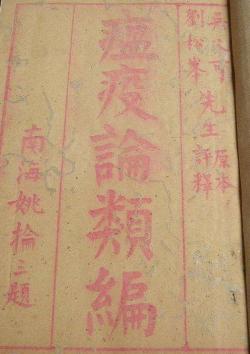 吳又可
劉松峯 先生 原本 評釋
瘟疫論類編
南海姚掄三題